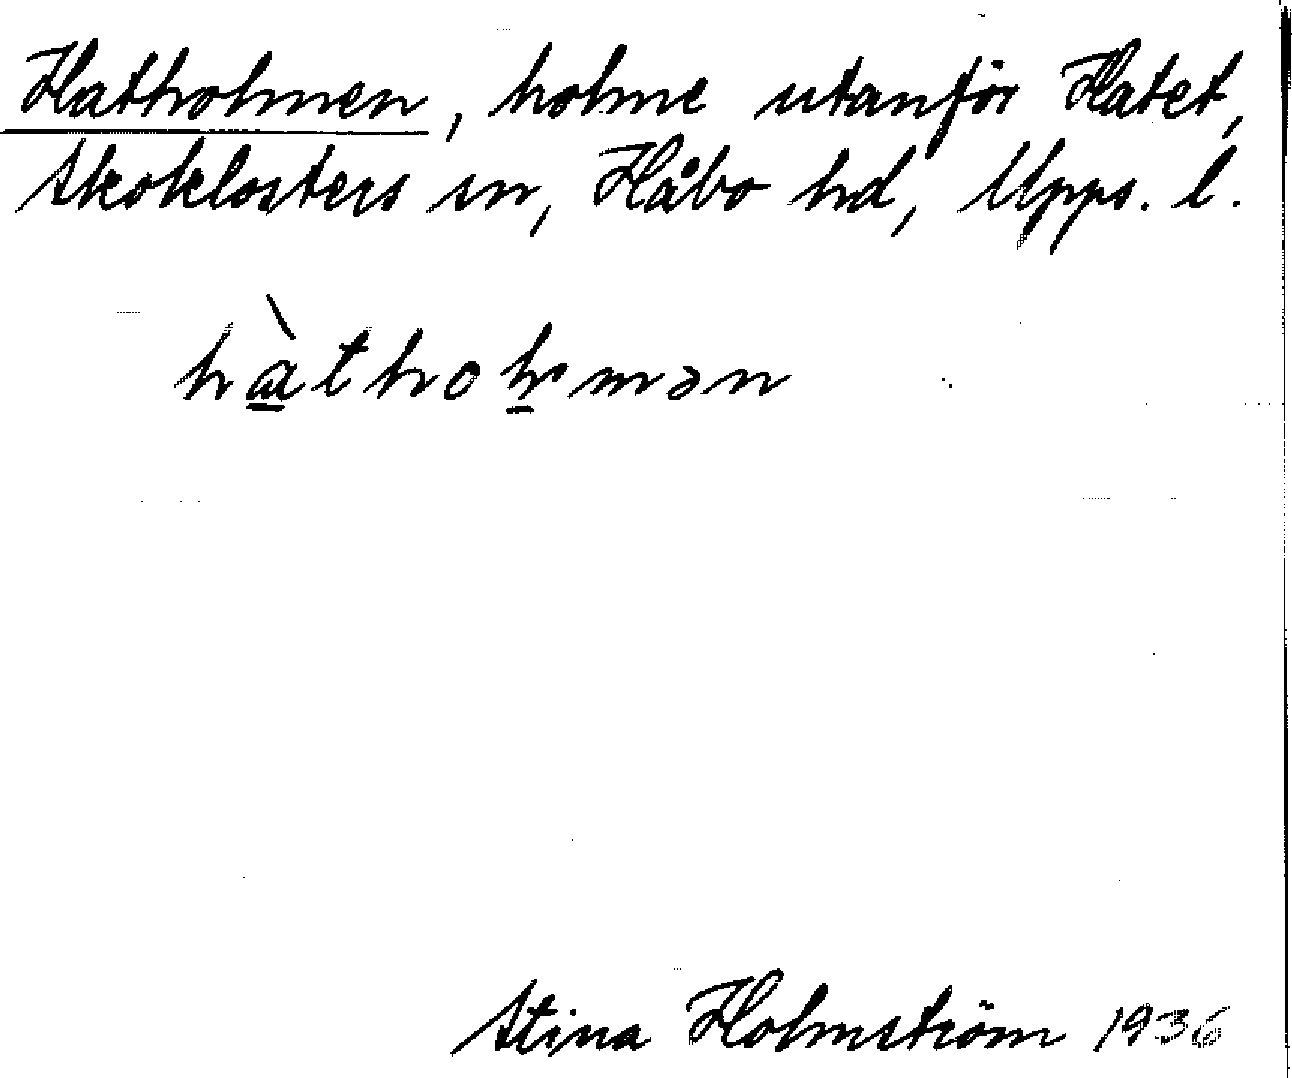 Hatholmen, holme utanför Hatet,
Skoklosters sn, Håbo hd, Upps. l.
Stina Holmström 1936